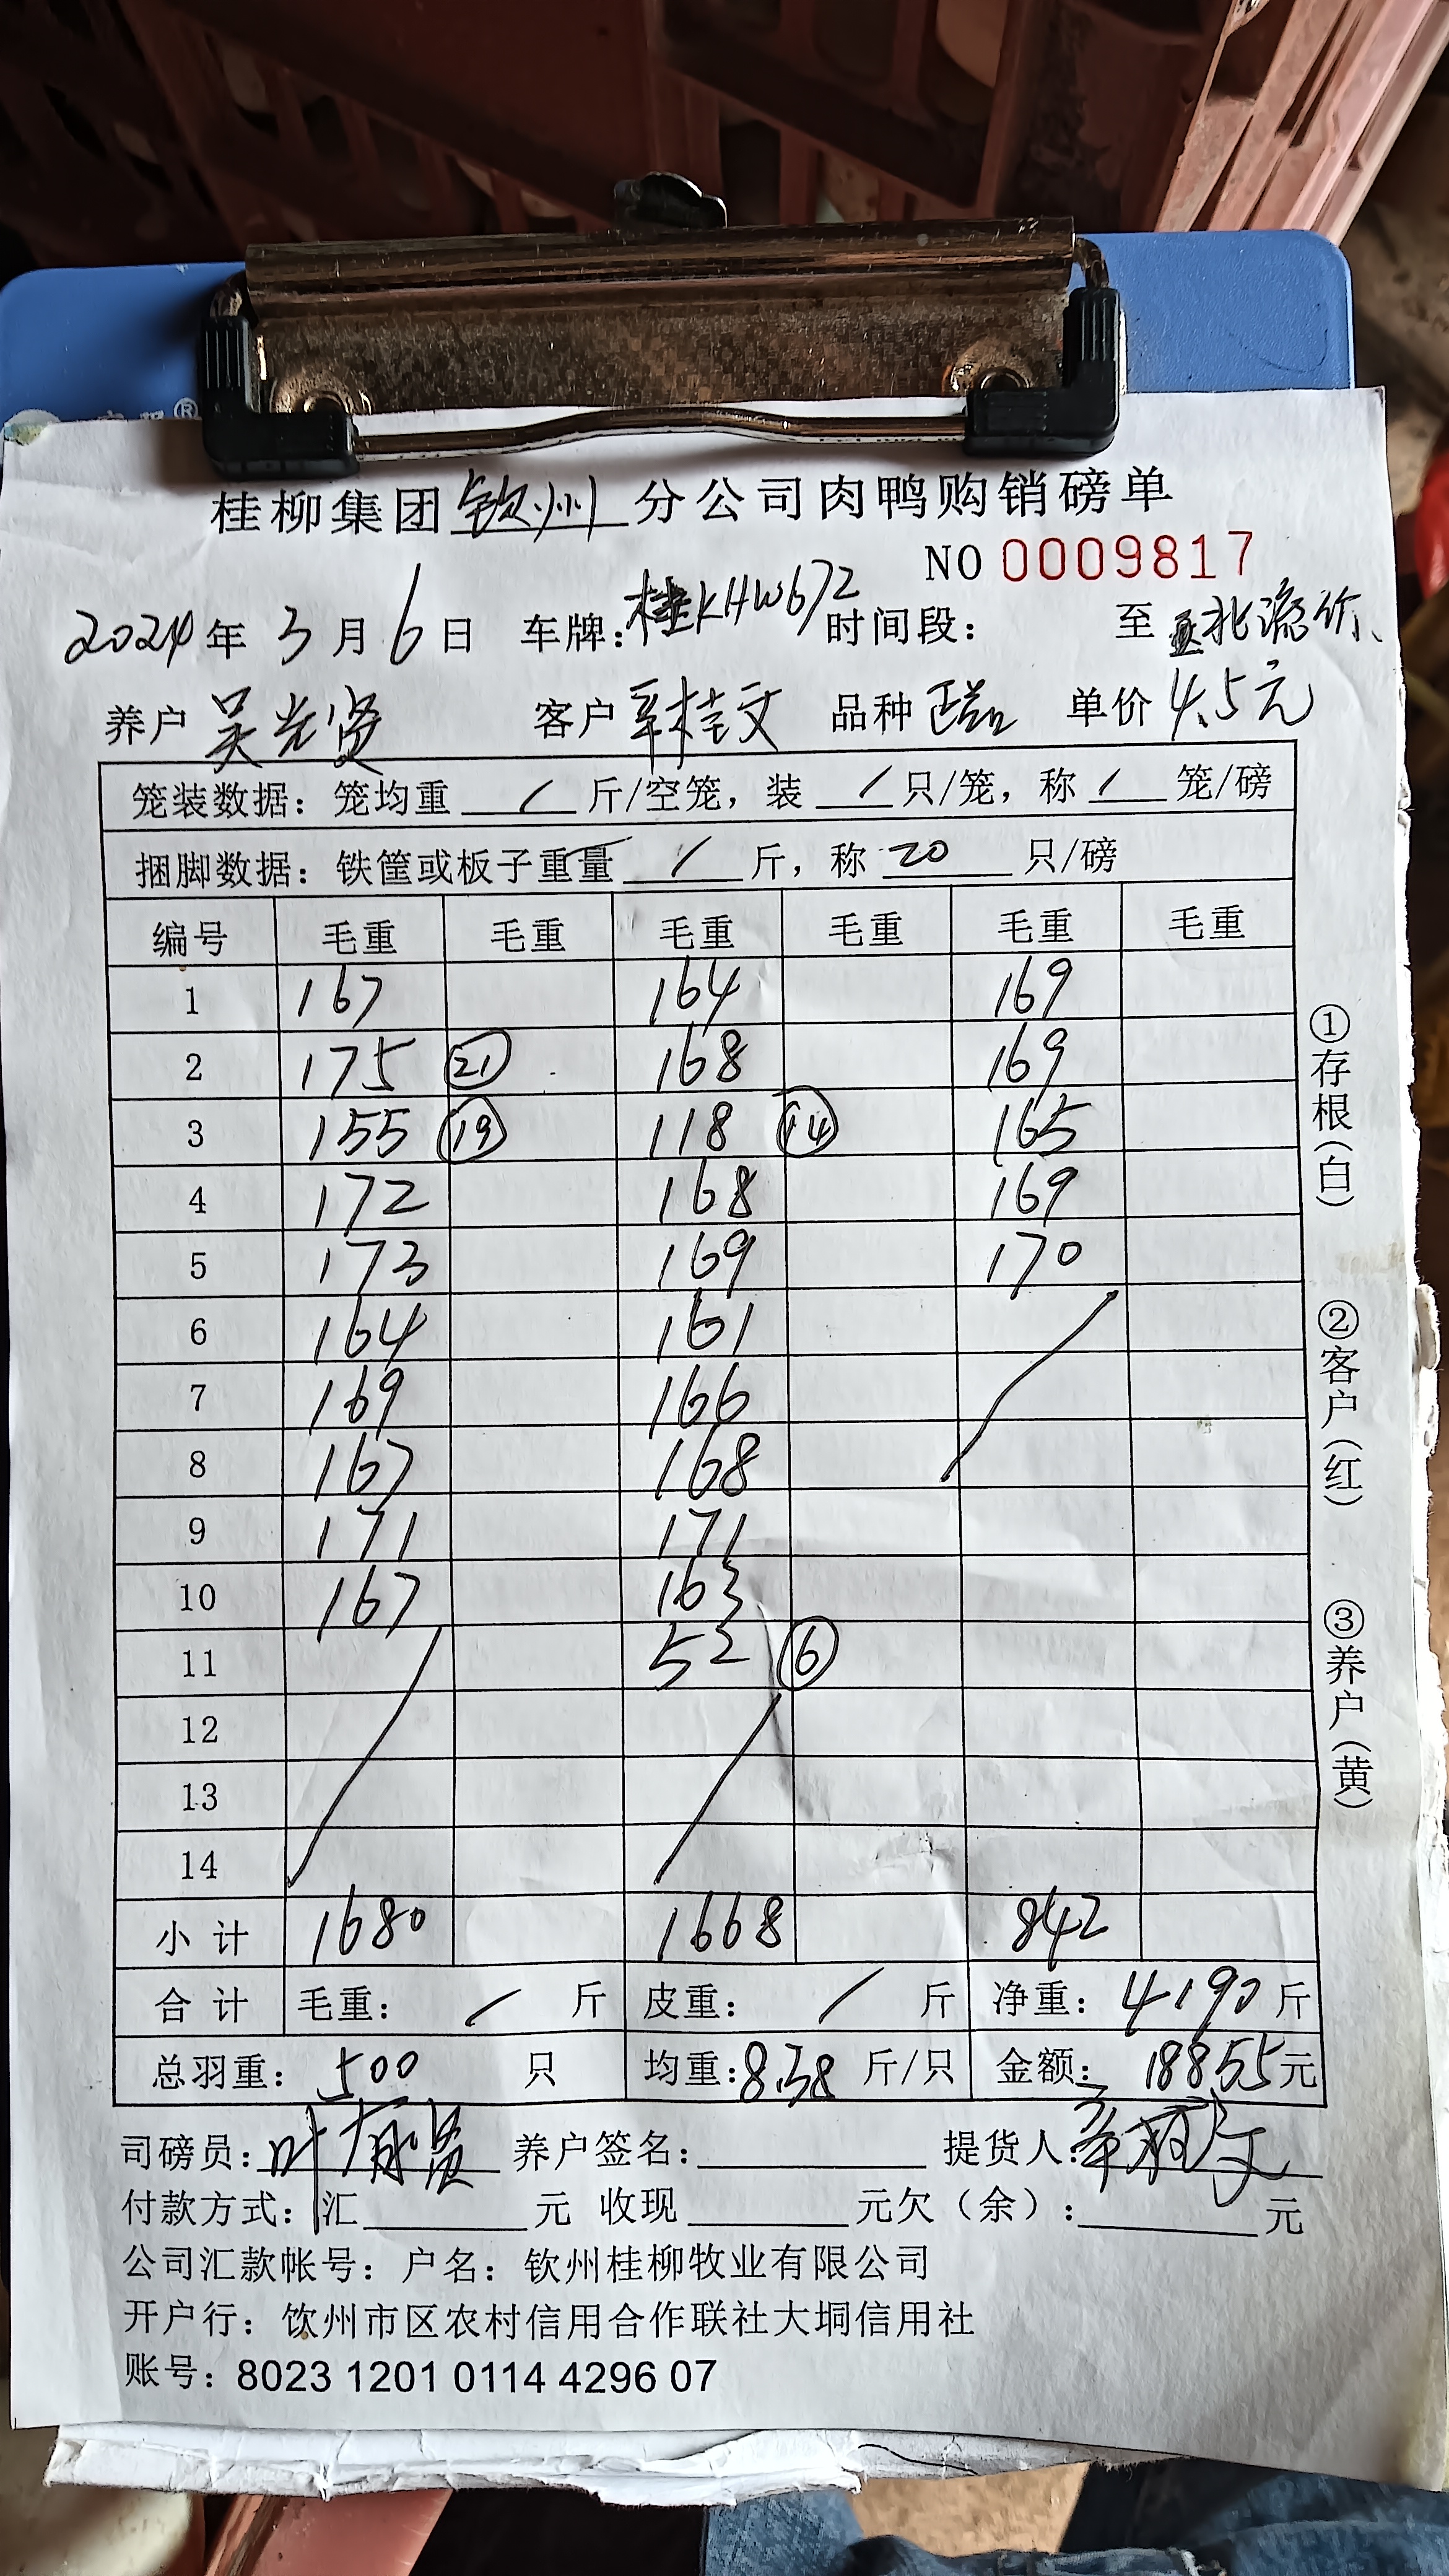 桂柳集团钦州分公司肉鸭购销磅单
NO 0009817
2024年3月6日 车牌:桂KHW672 时间段: 至 北流价
养户 吴光贤 客户 辛桂文 品种 单价 4.5元
笼装数据: 笼均重 / 斤/空笼, 装 / 只/笼, 称 / 笼/磅
捆脚数据: 铁筐或板子重量 / 斤, 称 20 只/磅
编号 毛重 毛重 毛重 毛重 毛重 毛重
1 167 164 169
2 175 ㉑ 168 169
3 155 ⑲ 118 ⑭ 165
4 172 168 169
5 173 169 170
6 164 161
7 169 166
8 167 168
9 171 171
10 167 163
11 52 ⑥
12
13
14
小计 1680 1668 842
合计 毛重: / 斤 皮重: / 斤 净重: 4190 斤
总羽重: 500 只 均重: 8.38 斤/只 金额: 18855元
司磅员: 叶 贤 养户签名: 提货人: 辛桂文
付款方式: 汇 元 收现 元欠(余): 元
公司汇款帐号: 户名: 钦州桂柳牧业有限公司
开户行: 钦州市区农村信用合作联社大垌信用社
账号: 8023 1201 0114 4296 07
①存根(白)
②客户(红)
③养户(黄)